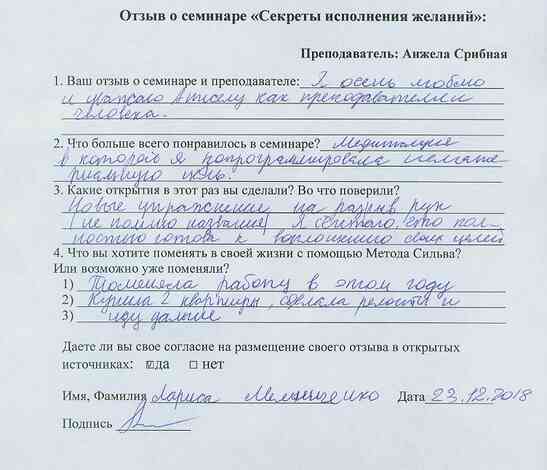 Отзыв о семинаре «Секреты исполнения желаний»:
Преподаватель: Анжела Срибная
1. Ваш отзыв о семинаре и преподавателе: Я очень люблю
и уважаю Анжелу как преподавателя и
человека.
2. Что больше всего понравилось в семинаре? Медитация
в которой я попрограммировала
цель.
3. Какие открытия в этот раз вы сделали? Во что поверили?
Новые упражнение на разрыв рук
(не помню название) Я считаю, что пол-
ностью готова к воплощению своих целей
4. Что вы хотите поменять в своей жизни с помощью Метода Сильва?
Или возможно уже поменяли?
1) Поменяла работу в этом году
2) Купила 2 квартиры, сделала ремонты и
3) иду дальше
Даете ли вы свое согласие на размещение своего отзыва в открытых
источниках: ☑да □ нет
Имя, Фамилия Лариса Дата 23.12.2018
Подпись